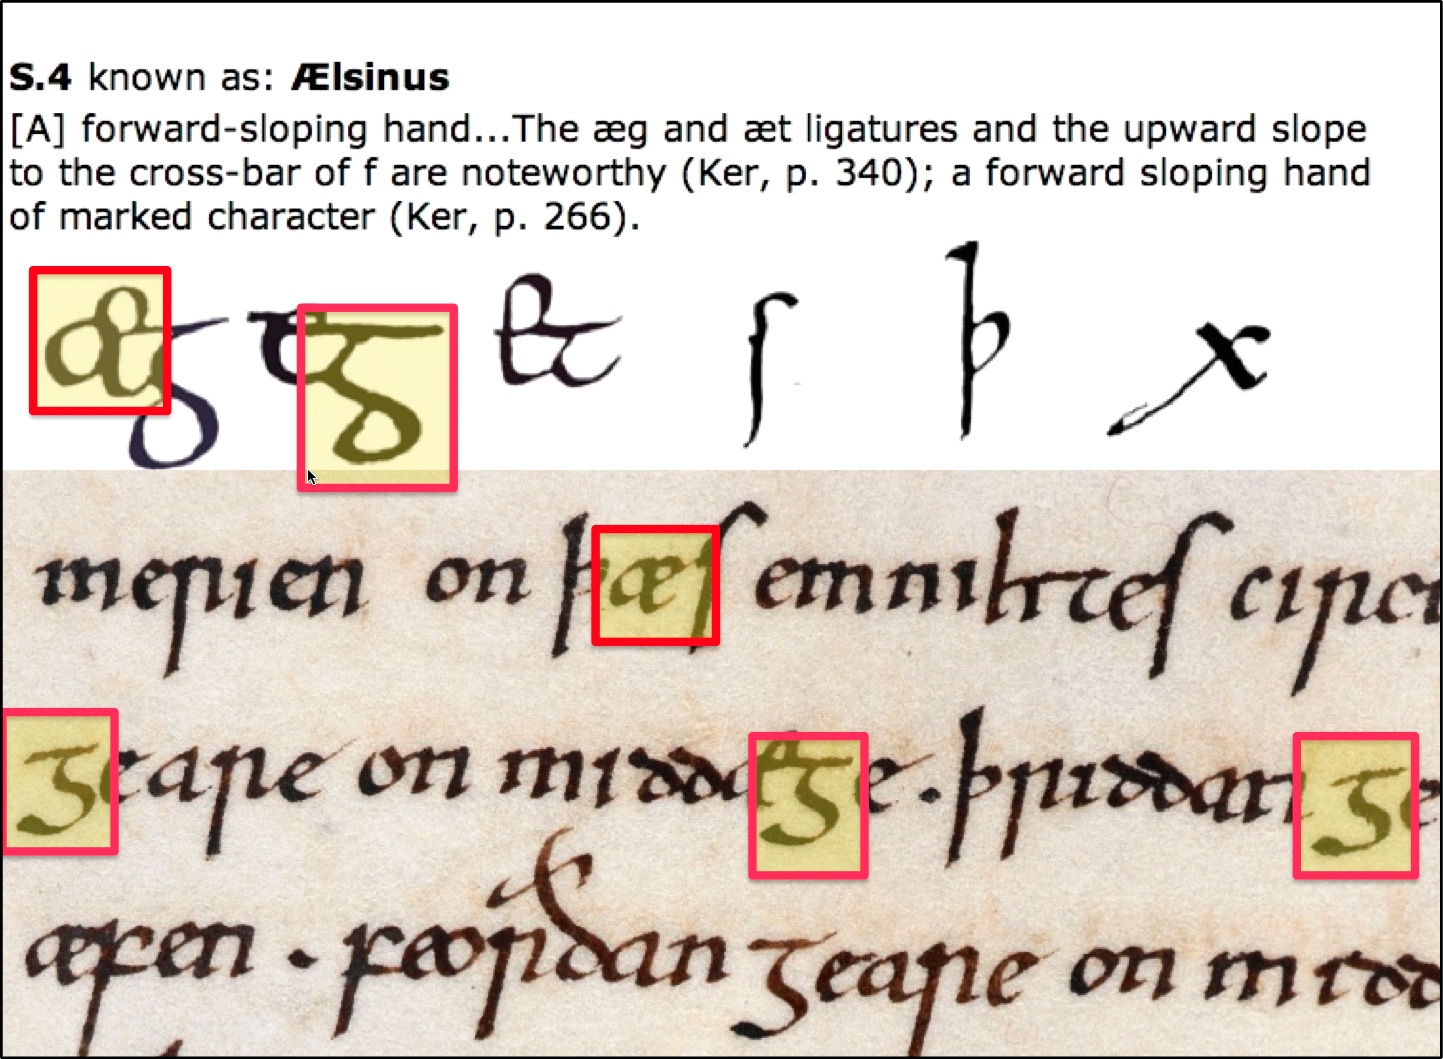 S.4 known as: Ælsinus
[A] forward-sloping hand...The æg and æt ligatures and the upward slope
to the cross-bar of f are noteworthy (Ker, p. 340); a forward sloping hand
of marked character (Ker, p. 266).
æg tg æt s þ x
merien on þæs emnihtes
geare on middæge . þriddan ge
æfen . feorðan geare on midd